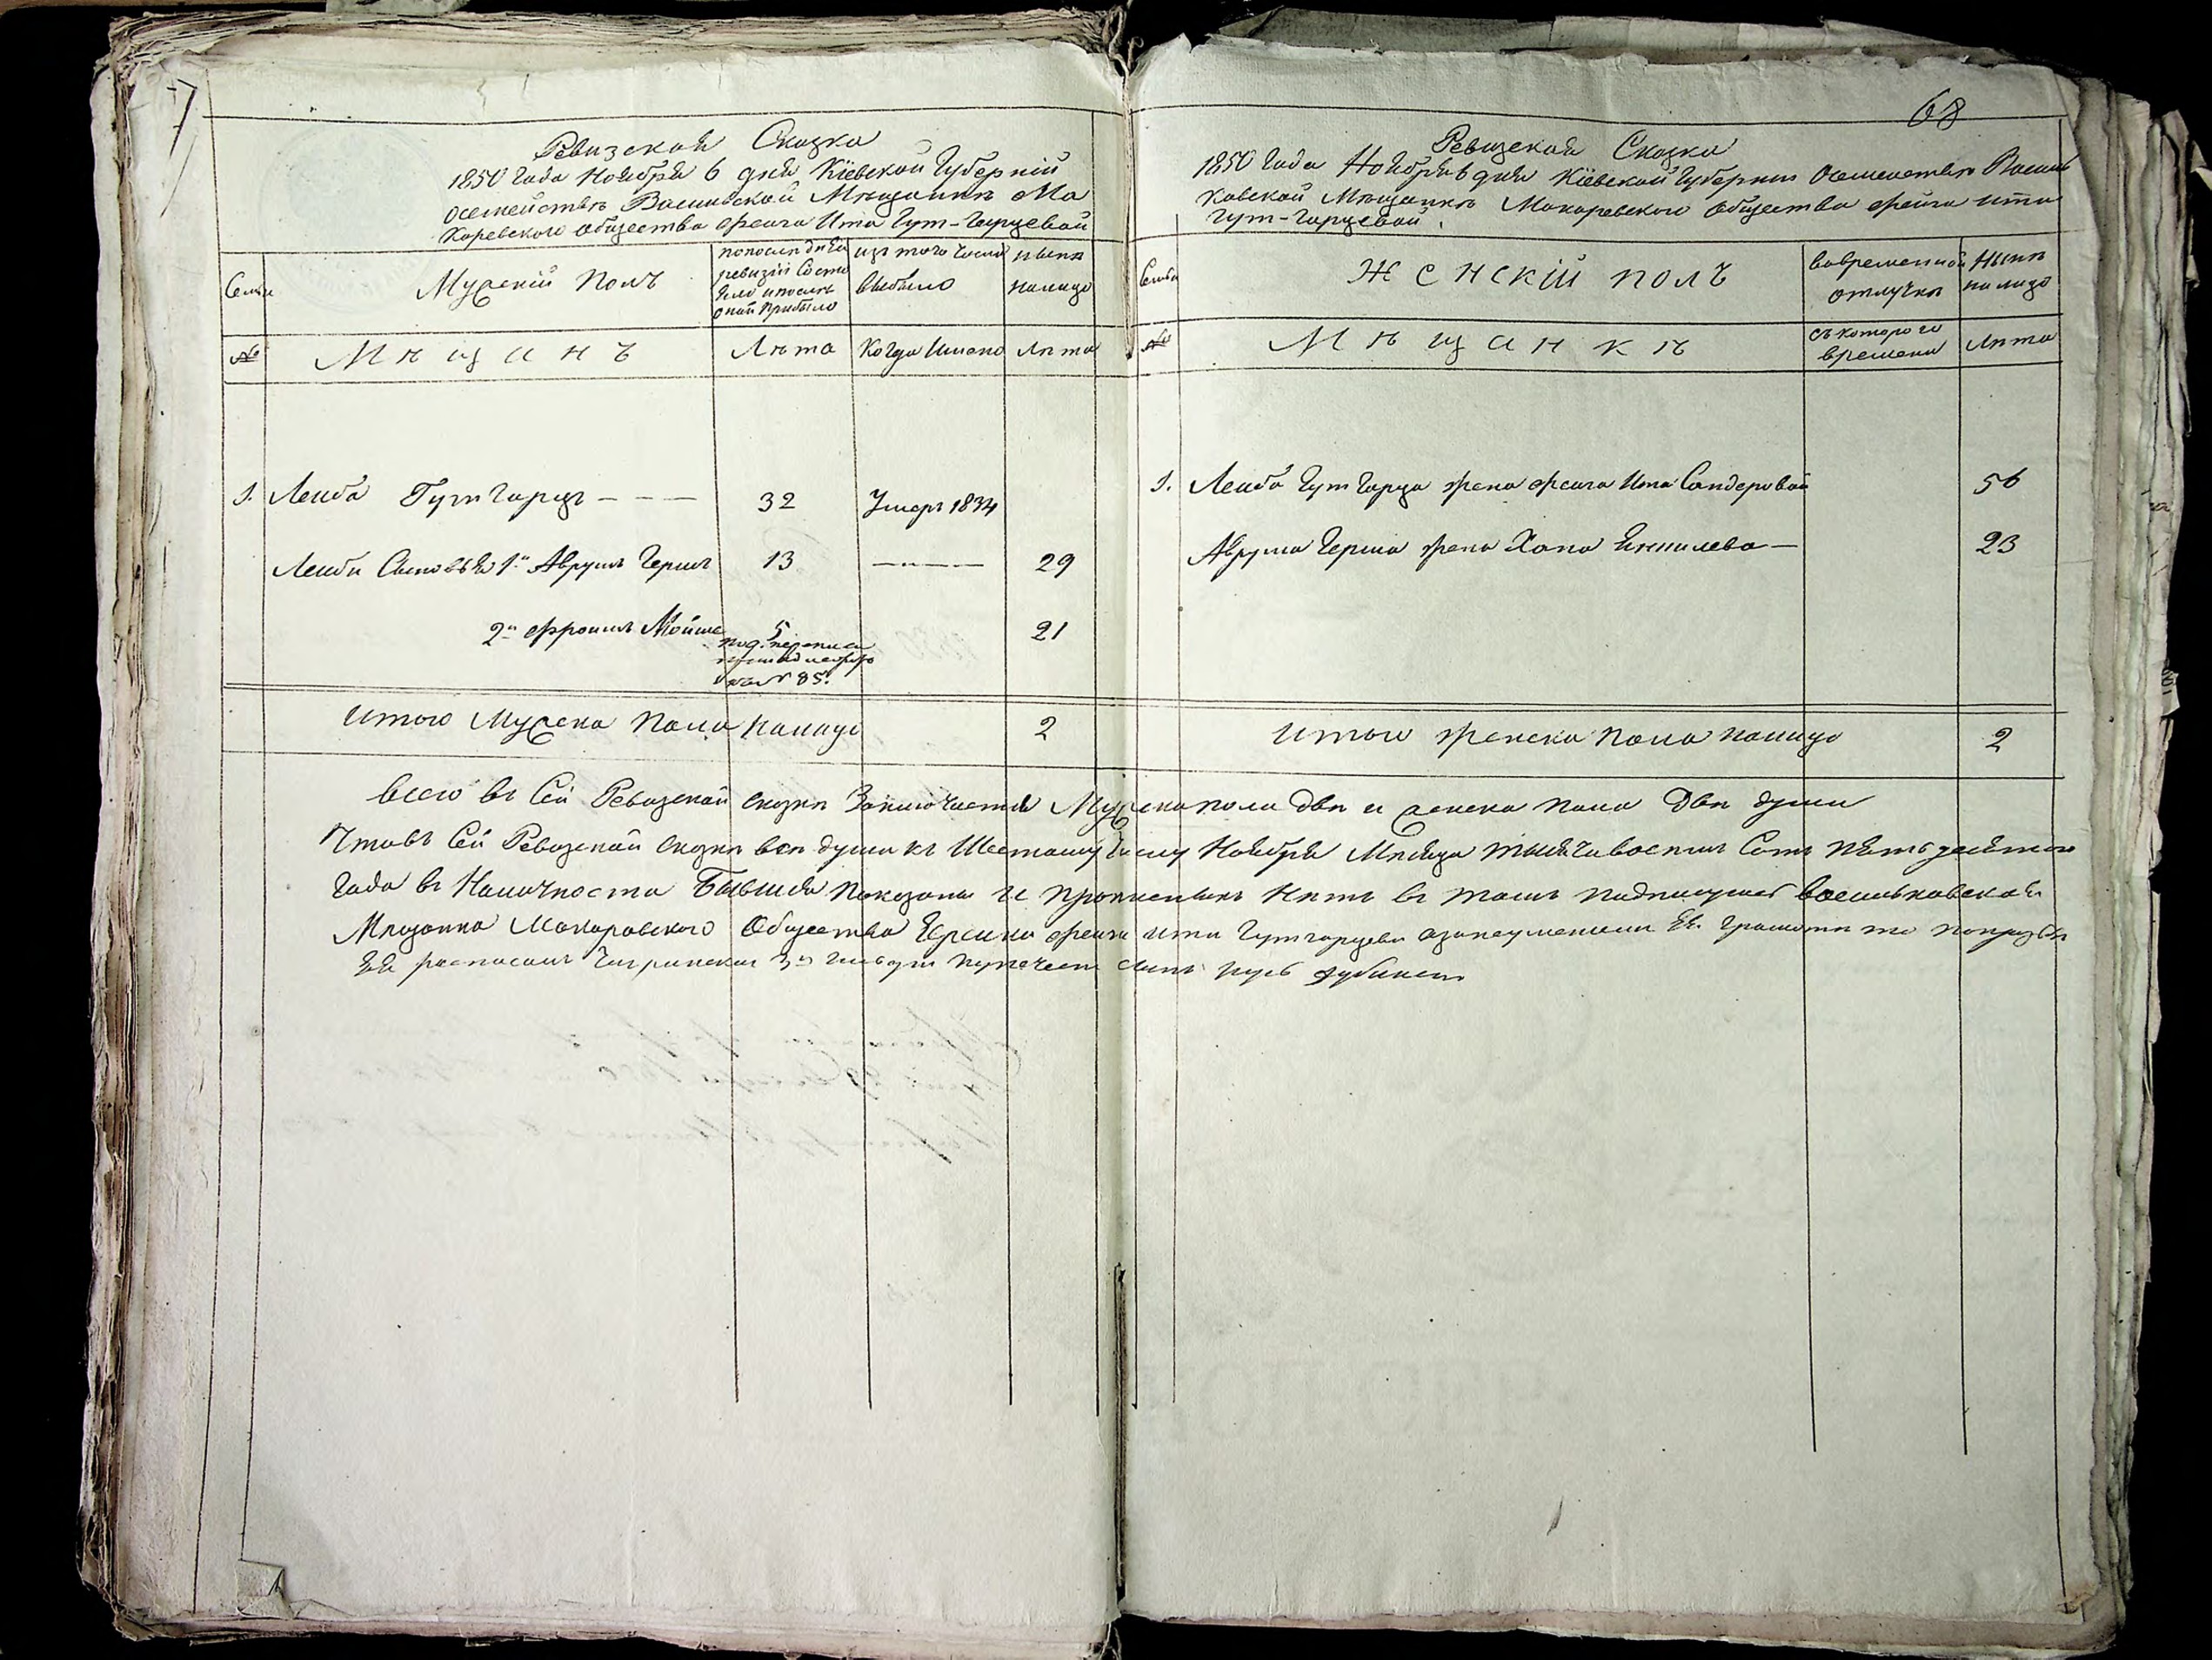 68
Ревизская Сказка
1850 года Ноября 6 дня Кіевской Губерніи
осемействѣ Васильской Мѣщанки Ма
каревского общества Фейга Ита Гут-Гарцевой
Семьи
Мужескій Полъ
по последней
ревизіи состо
яло и после
оной прибыло
изъ того числа
выбыло
нынѣ
налицо
№
Мѣщанъ
Лѣта
Когда Имено
Лѣта
1. Лейба Гутгарцъ - - - 32 Умеръ 1834
Лейби Сыновья 1й Аврумъ Гершъ 13 - - - 29
2й Фроимъ Мойше 5 21
под. переписи
№ 85.
Итого Мужеска Пола налицо 2
Ревизская Сказка
1850 Года Ноября 6 дня Кіевской Губерніи Осемействѣ Василь
ковской Мѣщанки Макаревского Общества Фейга Ита
Гут-Гарцевой.
Семьи
Женскій полъ
Вовременной
отлучкѣ
Нынѣ
налицо
№
Мѣщанкѣ
съ которого
времени
Лѣта
1. Лейба Гутгарца жена Фейга Ита Сандеровой 56
Аврума Герша жена Хана Янкилева — 23
Итого женска пола налицо 2
Всего въ Сей Ревизской сказкѣ Заключается Мужеска пола двѣ и женска пола двѣ души
Что въ Сей Ревизской сказкѣ всѣ души къ Шестому числу Ноября Мѣсяца тысяча восемь Сотъ пятьдесятого
Года въ Наличности Бывшія показаны и прописныхъ нѣтъ въ томъ подписуюсь Васильковская
Мѣщанка Макаровского Общества Фейга Ита Гутгарцева а за неумѣніем Ея Грамоты то по прозьбѣ
Ея росписался Чигринской 3й гильдіи